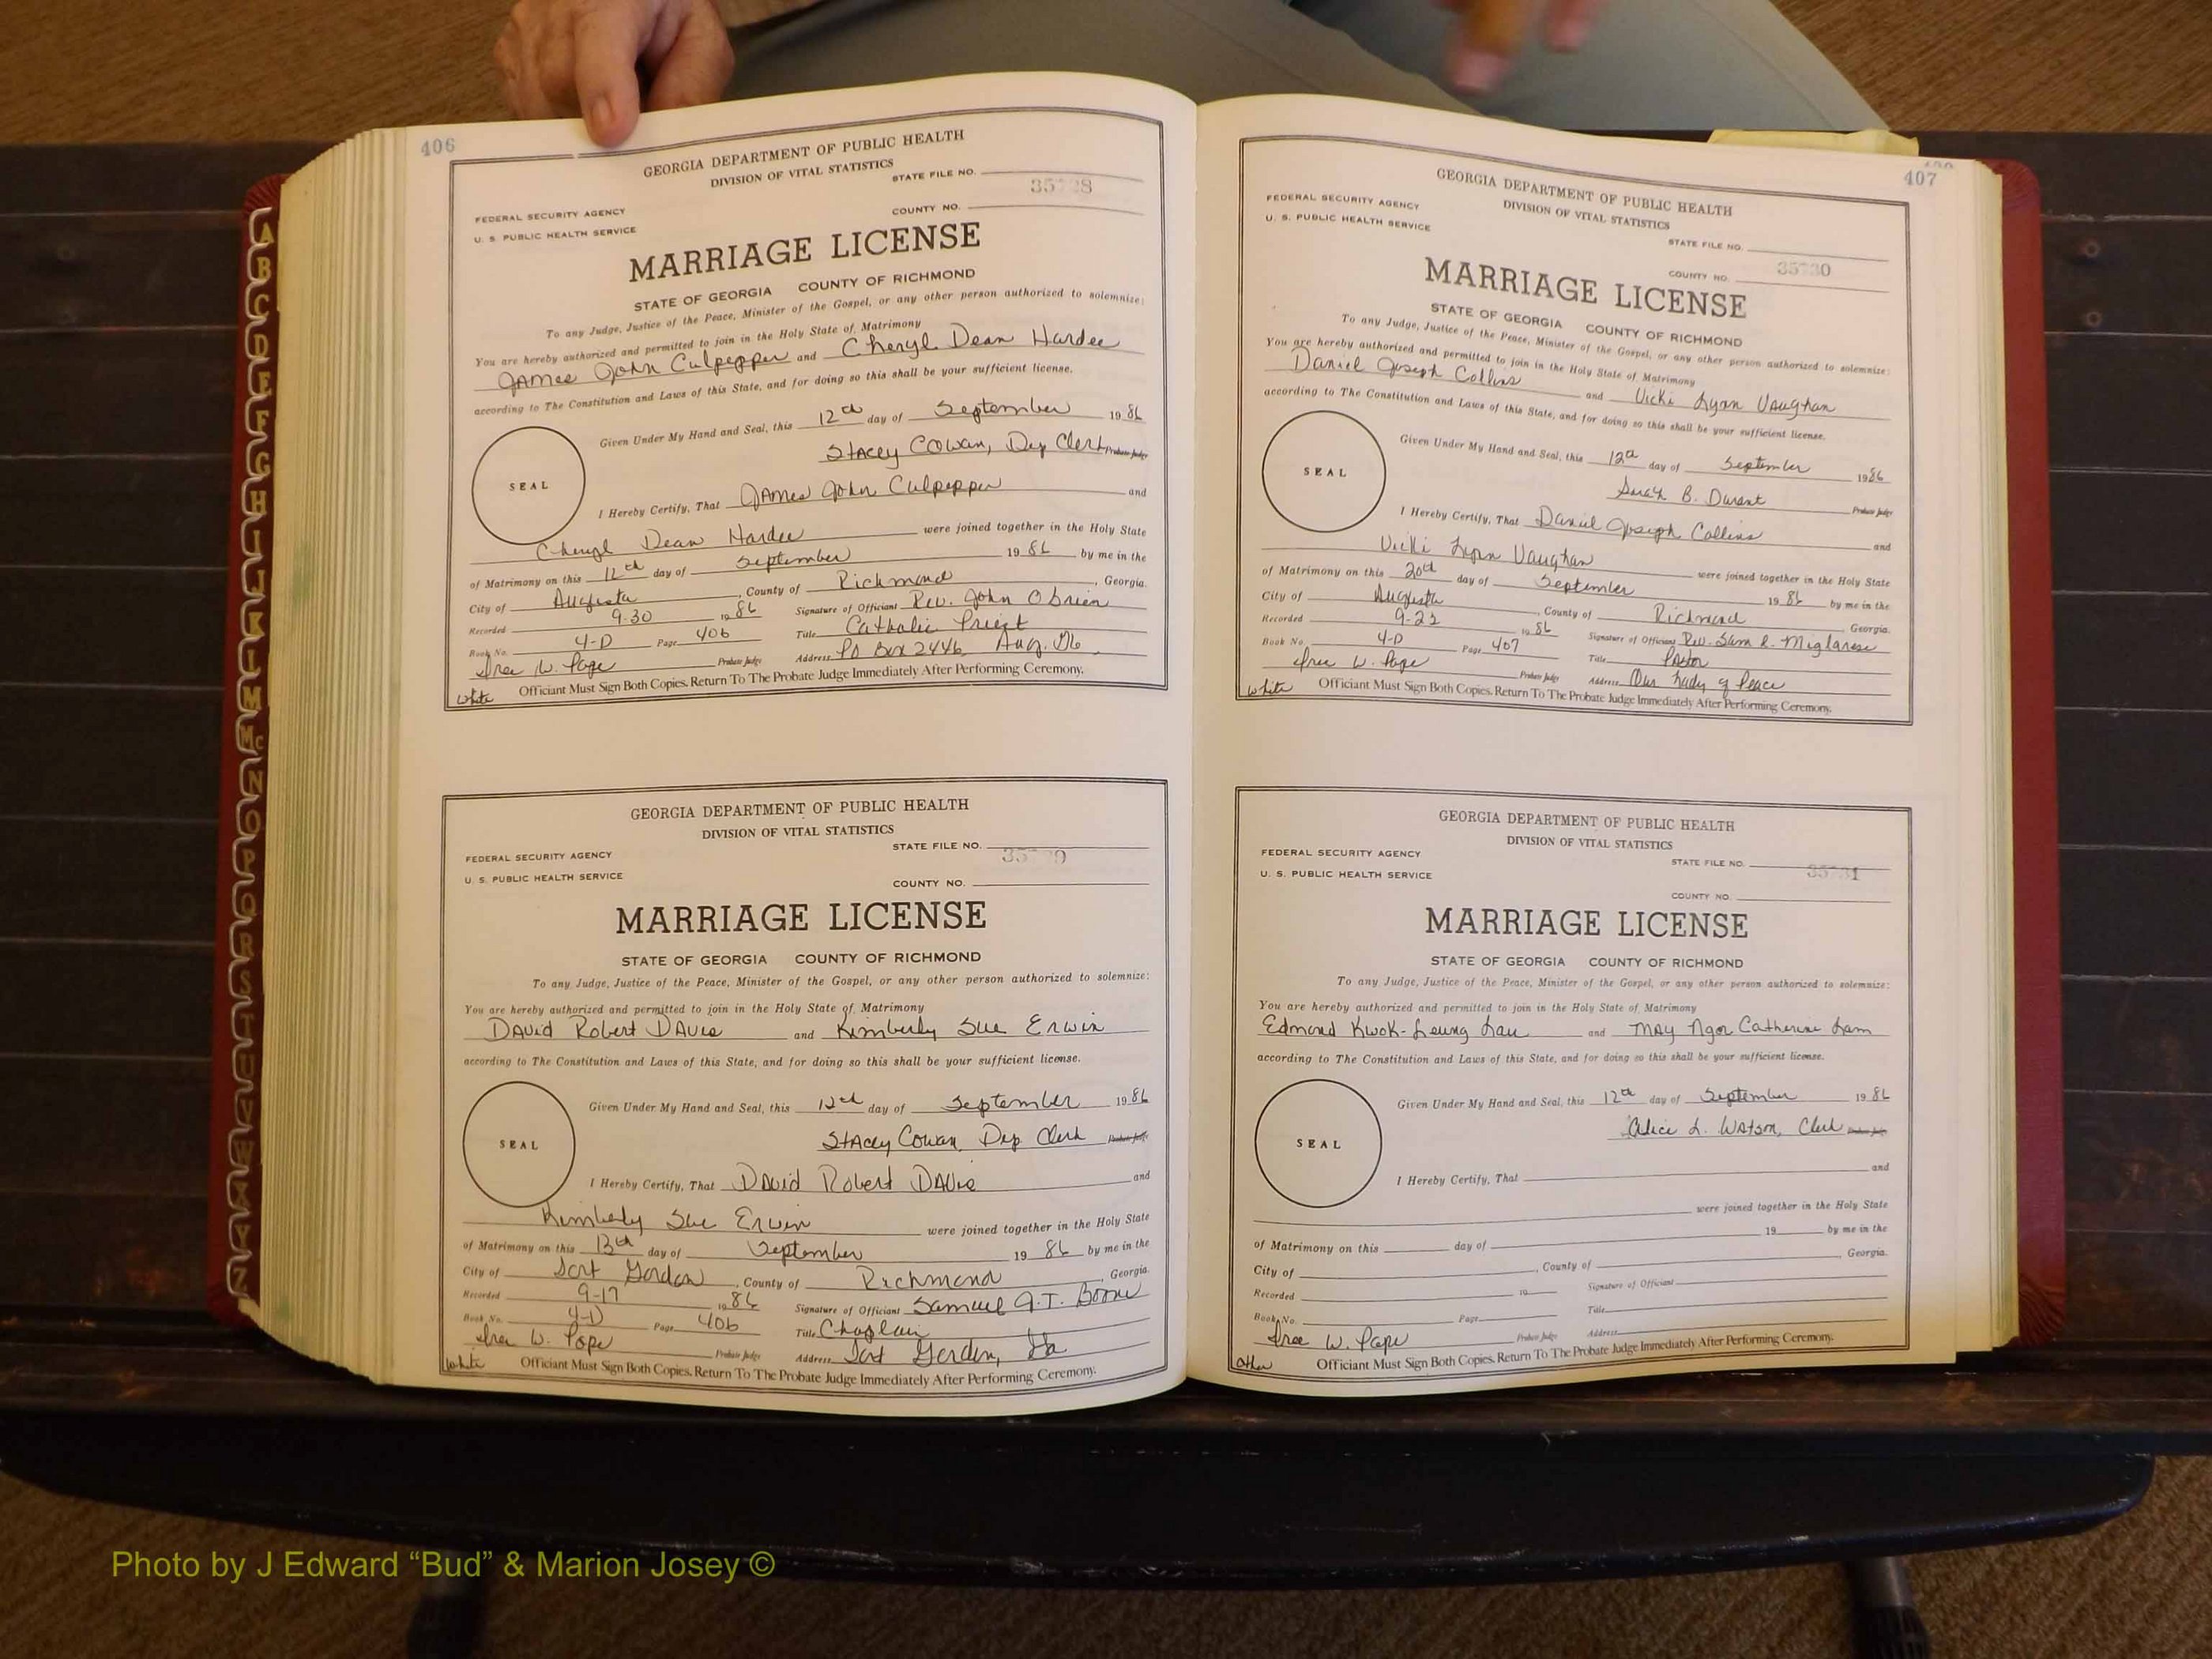 406
GEORGIA DEPARTMENT OF PUBLIC HEALTH
DIVISION OF VITAL STATISTICS
STATE FILE NO.
FEDERAL SECURITY AGENCY
COUNTY NO.
U. S. PUBLIC HEALTH SERVICE
MARRIAGE LICENSE
STATE OF GEORGIA COUNTY OF RICHMOND
To any Judge, Justice of the Peace, Minister of the Gospel, or any other person authorized to solemnize:
You are hereby authorized and permitted to join in the Holy State of Matrimony
James John Culpepper and Cheryl Dean Hardee
according to The Constitution and Laws of this State, and for doing so this shall be your sufficient license.
Given Under My Hand and Seal, this 12th day of September 1986
Stacey Cowan, Dep Clerk Probate Judge
SEAL
I Hereby Certify, That James John Culpepper and
Cheryl Dean Hardee were joined together in the Holy State
of Matrimony on this 12th day of September 1986 by me in the
City of Augusta, County of Richmond, Georgia.
Recorded 9-30 1986 Signature of Officiant Rev. John O'Brien
Book No. 4-D Page 406 Title Catholic Priest
W. Pope Probate Judge Address PO Box 2446 Aug.
White Officiant Must Sign Both Copies. Return To The Probate Judge Immediately After Performing Ceremony.
GEORGIA DEPARTMENT OF PUBLIC HEALTH
DIVISION OF VITAL STATISTICS
STATE FILE NO.
FEDERAL SECURITY AGENCY
U. S. PUBLIC HEALTH SERVICE
COUNTY NO.
MARRIAGE LICENSE
STATE OF GEORGIA COUNTY OF RICHMOND
To any Judge, Justice of the Peace, Minister of the Gospel, or any other person authorized to solemnize:
You are hereby authorized and permitted to join in the Holy State of Matrimony
David Robert Davis and Kimberly Sue Erwin
according to The Constitution and Laws of this State, and for doing so this shall be your sufficient license.
Given Under My Hand and Seal, this 12th day of September 1986
Stacey Cowan, Dep. Clerk Probate Judge
SEAL
I Hereby Certify, That David Robert Davis and
Kimberly Sue Erwin were joined together in the Holy State
of Matrimony on this 13th day of September 1986 by me in the
City of Fort Gordon, County of Richmond, Georgia.
Recorded 9-17 1986 Signature of Officiant Samuel A.T. Boone
Book No. 4-D Page 406 Title Chaplain
W. Pope Probate Judge Address Fort Gordon, Ga
White Officiant Must Sign Both Copies. Return To The Probate Judge Immediately After Performing Ceremony.
407
GEORGIA DEPARTMENT OF PUBLIC HEALTH
DIVISION OF VITAL STATISTICS
FEDERAL SECURITY AGENCY
U. S. PUBLIC HEALTH SERVICE
STATE FILE NO.
COUNTY NO. 35730
MARRIAGE LICENSE
STATE OF GEORGIA COUNTY OF RICHMOND
To any Judge, Justice of the Peace, Minister of the Gospel, or any other person authorized to solemnize:
You are hereby authorized and permitted to join in the Holy State of Matrimony
Daniel Joseph Collins and Vicki Lynn Vaughan
according to The Constitution and Laws of this State, and for doing so this shall be your sufficient license.
Given Under My Hand and Seal, this 12th day of September 1986
Sarah B. Durant
Probate Judge
SEAL
I Hereby Certify, That Daniel Joseph Collins and
Vicki Lynn Vaughan were joined together in the Holy State
of Matrimony on this 20th day of September 1986 by me in the
City of Augusta, County of Richmond Georgia.
Recorded 9-22 1986 Signature of Officiant Rev. Sam R. Miglarese
Book No. 4-D Page 407 Title Pastor
W. Pope Probate Judge Address Our Lady of Peace
White Officiant Must Sign Both Copies. Return To The Probate Judge Immediately After Performing Ceremony.
GEORGIA DEPARTMENT OF PUBLIC HEALTH
DIVISION OF VITAL STATISTICS
FEDERAL SECURITY AGENCY
STATE FILE NO. 35731
U. S. PUBLIC HEALTH SERVICE
COUNTY NO.
MARRIAGE LICENSE
STATE OF GEORGIA COUNTY OF RICHMOND
To any Judge, Justice of the Peace, Minister of the Gospel, or any other person authorized to solemnize:
You are hereby authorized and permitted to join in the Holy State of Matrimony
Edmond Kwok-Leung Lau and May Ngor Catherine Lam
according to The Constitution and Laws of this State, and for doing so this shall be your sufficient license.
Given Under My Hand and Seal, this 12th day of September 1986
Alice L. Watson, Clerk Probate Judge
SEAL
I Hereby Certify, That and
were joined together in the Holy State
of Matrimony on this day of 19 by me in the
City of , County of Georgia.
Recorded 19 Signature of Officiant
Book No. Page Title
W. Pope Probate Judge Address
Other Officiant Must Sign Both Copies. Return To The Probate Judge Immediately After Performing Ceremony.
A
B
C
D
E
F
G
H
I
J
K
L
M
Mc
N
O
P
Q
R
S
T
U
V
W
X
Y
Z
Photo by J Edward “Bud” & Marion Josey ©